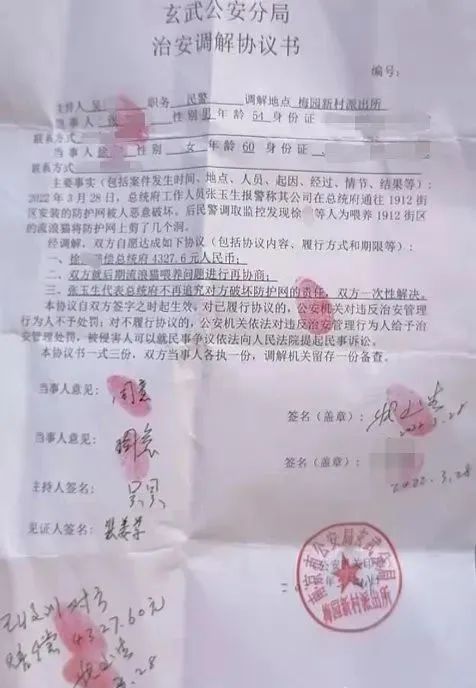 玄武公安分局
治安调解协议书
编号：
主持人 吴 职务 民警 调解地点 梅园新村派出所
当事人 张 性别 男 年龄 54 身份证
联系方式
当事人 徐 性别 女 年龄 60 身份证
联系方式
主要事实（包括案件发生时间、地点、人员、起因、经过、情节、结果等）：
2022年3月28日，总统府工作人员张玉生报警称其公司在总统府通往1912街
区安装的防护网被人恶意破坏。后民警调取监控发现徐 等人为喂养1912街区
的流浪猫将防护网上剪了几个洞。
经调解，双方自愿达成如下协议（包括协议内容、履行方式和期限等）：
一、徐 赔偿总统府4327.6元人民币；
二、双方就后期流浪猫喂养问题进行再协商；
三、张玉生代表总统府不再追究对方破坏防护网的责任，双方一次性解决。
本协议自双方签字之时起生效。对已履行协议的，公安机关对违反治安管理
行为人不予处罚；对不履行协议的，公安机关依法对违反治安管理行为人给予治
安管理处罚，被侵害人可以就民事争议依法向人民法院提起民事诉讼。
本协议书一式三份，双方当事人各执一份，调解机关留存一份备查。
当事人意见： 同意
签名（盖章）： 张玉生
2022.3.28
当事人意见： 同意
签名（盖章）：
2022.3.28
主持人签名：
见证人签名：
南京市公安局玄武分局
梅园新村派出所
已收到对方
赔偿4327.60元
张玉生
3.28